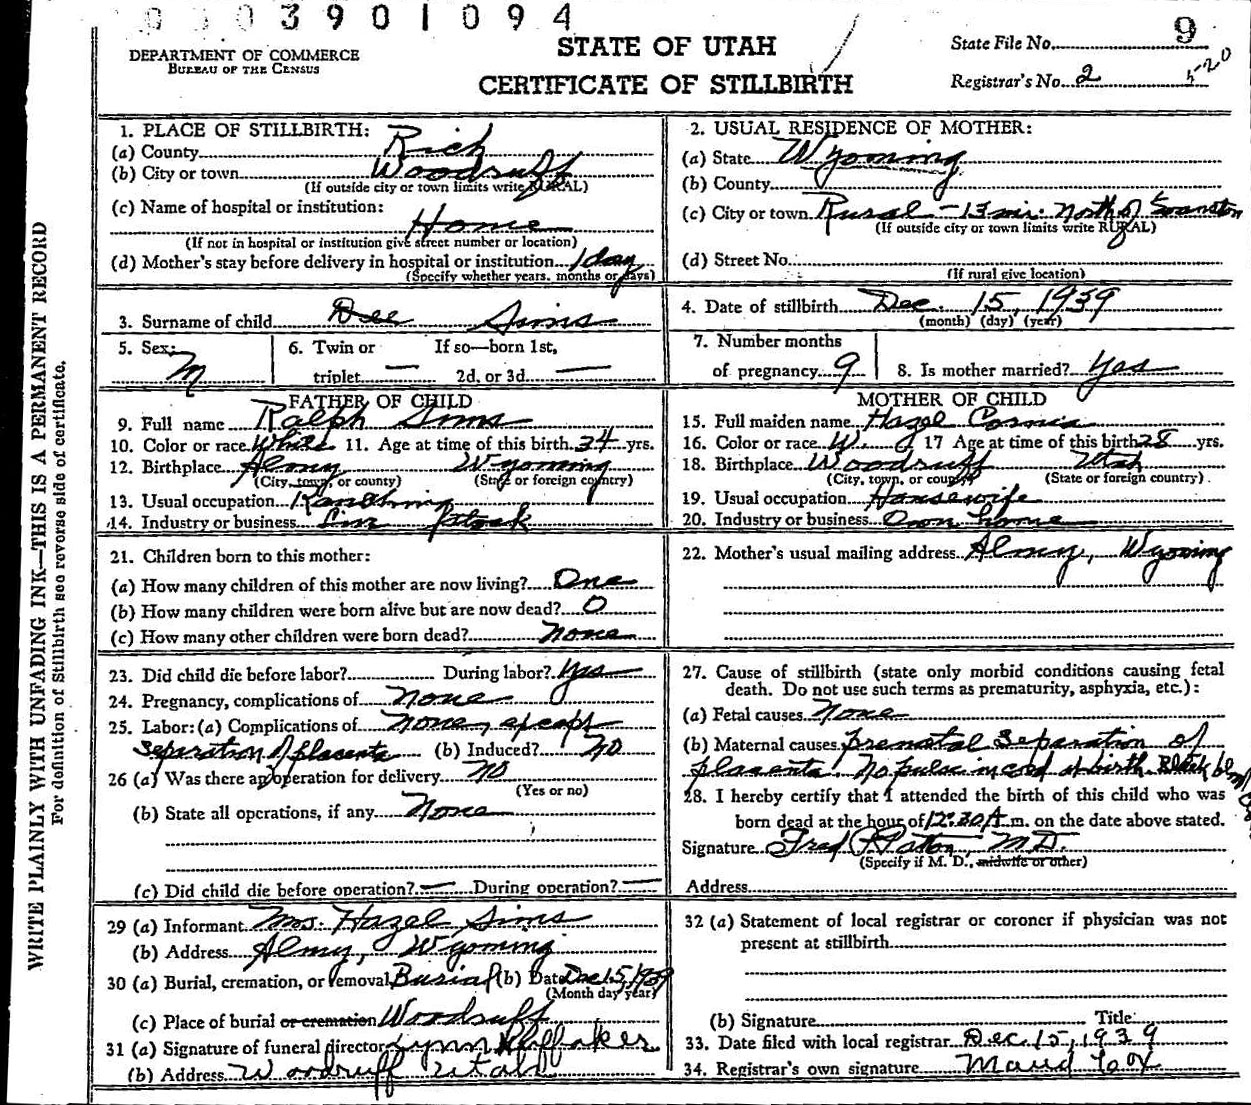 0 0 3 9 0 1 0 9 4
DEPARTMENT OF COMMERCE
BUREAU OF THE CENSUS
STATE OF UTAH
CERTIFICATE OF STILLBIRTH
State File No. 9
Registrar's No. 2 5-20
WRITE PLAINLY WITH UNFADING INK—THIS IS A PERMANENT RECORD
For definition of Stillbirth see reverse side of certificate.
1. PLACE OF STILLBIRTH:
(a) County Rich
(b) City or town Woodruff
(If outside city or town limits write RURAL)
(c) Name of hospital or institution:
Home
(If not in hospital or institution give street number or location)
(d) Mother's stay before delivery in hospital or institution 1 day
(Specify whether years, months or days)
2. USUAL RESIDENCE OF MOTHER:
(a) State Wyoming
(b) County
(c) City or town Rural - 13 mi. North of Evanston
(If outside city or town limits write RURAL)
(d) Street No.
(If rural give location)
3. Surname of child Dee Sims
4. Date of stillbirth Dec. 15, 1939
(month) (day) (year)
5. Sex: M
6. Twin or triplet — If so—born 1st, 2d, or 3d —
7. Number months of pregnancy 9
8. Is mother married? Yes
FATHER OF CHILD
9. Full name Ralph Sims
10. Color or race White 11. Age at time of this birth 34 yrs.
12. Birthplace Almy, Wyoming
(City, town, or county) (State or foreign country)
13. Usual occupation Ranching
14. Industry or business stock
MOTHER OF CHILD
15. Full maiden name Hazel Cornia
16. Color or race W. 17 Age at time of this birth 28 yrs.
18. Birthplace Woodruff Utah
(City, town, or county) (State or foreign country)
19. Usual occupation Housewife
20. Industry or business Own home
21. Children born to this mother:
(a) How many children of this mother are now living? One
(b) How many children were born alive but are now dead? 0
(c) How many other children were born dead? none
22. Mother's usual mailing address Almy, Wyoming
23. Did child die before labor? During labor? Yes
24. Pregnancy, complications of None
25. Labor: (a) Complications of None, except
Separation of placenta (b) Induced? No
26 (a) Was there an operation for delivery No
(Yes or no)
(b) State all operations, if any None
(c) Did child die before operation? — During operation? —
27. Cause of stillbirth (state only morbid conditions causing fetal
death. Do not use such terms as prematurity, asphyxia, etc.):
(a) Fetal causes None
(b) Maternal causes prenatal separation of
placenta. No pulse in cord at birth. Black
28. I hereby certify that I attended the birth of this child who was
born dead at the hour of 12:30 A.m. on the date above stated.
Signature Fred Patton, M.D.
(Specify if M. D., midwife or other)
Address
29 (a) Informant Mrs. Hazel Sims
(b) Address Almy, Wyoming
30 (a) Burial, cremation, or removal Burial (b) Date Dec 15, 1939
(Month day year)
(c) Place of burial or cremation Woodruff
31 (a) Signature of funeral director Lynn Huffaker
(b) Address Woodruff Utah
32 (a) Statement of local registrar or coroner if physician was not
present at stillbirth
(b) Signature Title:
33. Date filed with local registrar Dec. 15, 1939
34. Registrar's own signature Maud Cox